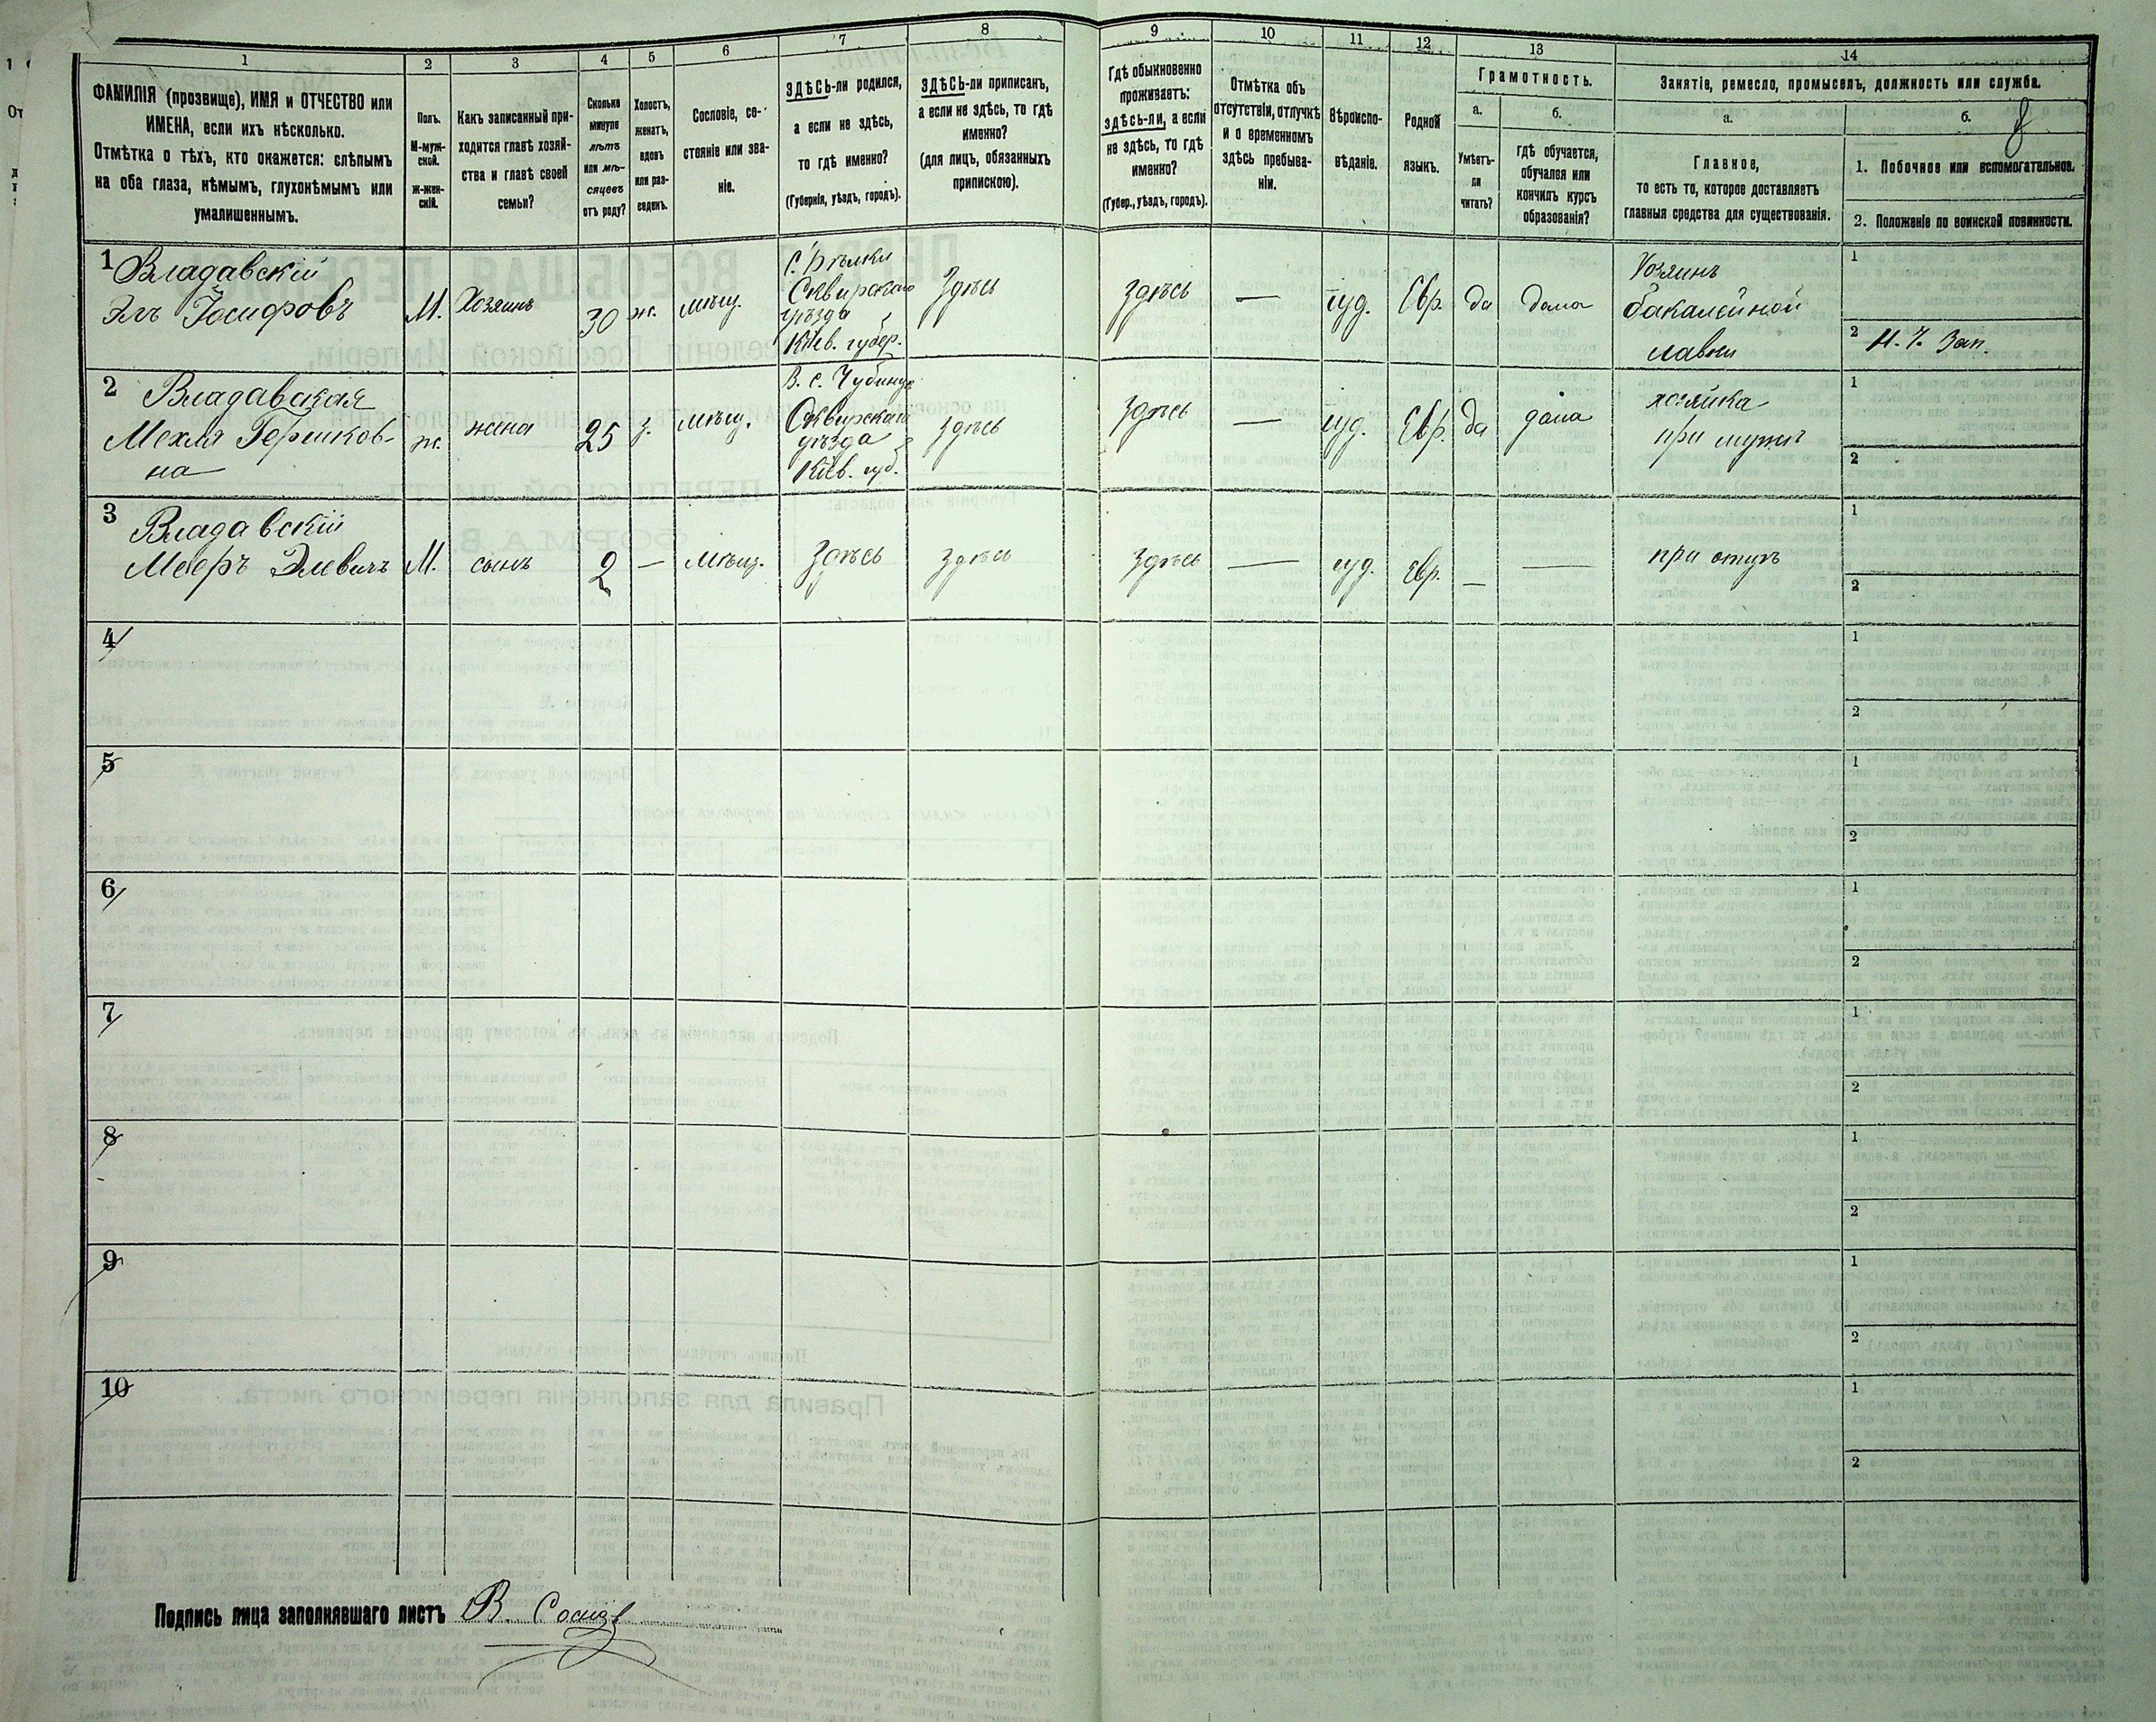 1
2
3
4
5
6
7
8
9
10
11
12
13
14
ФАМИЛІЯ (прозвище), ИМЯ и ОТЧЕСТВО или
ИМЕНА, если ихъ нѣсколько.
Отмѣтка о тѣхъ, кто окажется: слѣпымъ
на оба глаза, нѣмымъ, глухонѣмымъ или
умалишеннымъ.
Полъ.
М-муж-
ской.
ж-жен-
скій.
Какъ записанный при-
ходится главѣ хозяй-
ства и главѣ своей
семьи?
Сколько
минуло
лѣтъ
или мѣ-
сяцевъ
отъ роду?
Холостъ,
женатъ,
вдовъ
или раз-
веденъ.
Сословіе, со-
стояніе или зва-
ніе.
ЗДѢСЬ-ли родился,
а если не здѣсь,
то гдѣ именно?
(Губернія, уѣздъ, городъ).
ЗДѢСЬ-ли приписанъ,
а если не здѣсь, то гдѣ
именно?
(для лицъ, обязанныхъ
припискою).
Гдѣ обыкновенно
проживаетъ:
здѣсь-ли, а если
не здѣсь, то гдѣ
именно?
(Губер., уѣздъ, городъ).
Отмѣтка объ
отсутствіи, отлучкѣ
и о временномъ
здѣсь пребыва-
ніи.
Вѣроиспо-
вѣданіе.
Родной
языкъ.
Грамотность.
а.
б.
Умѣетъ-
ли
читать?
гдѣ обучается,
обучался или
кончилъ курсъ
образованія?
Занятіе, ремесло, промыселъ, должность или служба.
а.
б.
Главное,
то есть то, которое доставляетъ
главныя средства для существованія.
1. Побочное или вспомогательное.
2. Положеніе по воинской повинности.
1 Владавскій
Эль Іосифовъ
М.
Хозяинъ
30
ж.
мѣщ.
Сквирскаго
уѣзда
Кіев. губер.
Здѣсь
здѣсь
—
іуд.
Евр.
да
дома
Хозяинъ
бакалейной
лавки
1
2
2 Владавская
Мехля Гершков-
на
ж.
жена
25
з.
мѣщ.
Сквирскаго
уѣзда
Кіев. губ.
здѣсь
здѣсь
—
іуд.
Евр.
да
дома
хозяйка
при мужѣ
1
2
3 Владавскій
Мееръ Элевичъ
М.
сынъ
2
—
мѣщ.
здѣсь
здѣсь
здѣсь
—
іуд.
евр.
—
—
при отцѣ
1
2
4
1
2
5
1
2
6
1
2
7
1
2
8
1
2
9
1
2
10
1
2
Подпись лица заполнявшаго листъ В.